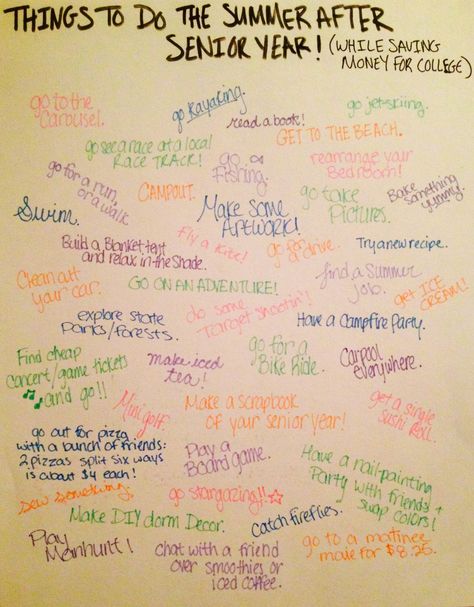 THINGS TO DO THE SUMMER AFTER
SENIOR YEAR! (WHILE SAVING
MONEY FOR COLLEGE)
go to the
Carousel.
go kayaking.
go jet-skiing.
read a book!
GET TO THE BEACH.
go see a race at a local
RACE TRACK!
go
Fishing.
rearrange your
BedROOM!
go for a run,
or a walk
CAMPOUT.
go take
Pictures.
Bake something
yummy!
Swim.
Make Some
ARTWORK!
Fly a kite!
go for a drive.
Try a new recipe.
Build a Blanket tent
and relax in the shade.
Clean out
your car.
GO ON AN ADVENTURE!
find a Summer
job.
get ICE
CREAM!
explore State
Parks/forests.
do some
"Target Shootin'!
Have a Campfire Party.
Find cheap
concert/game tickets
and go!!
make iced
tea!
go for a
Bike Ride.
Carpool
everywhere.
Mini golf.
Make a scrapbook
of your senior year!
get a single
Sushi Roll.
go out for pizza
with a bunch of friends:
2 pizzas split six ways
is about $4 each!
Play a
Board game.
Have a nail-painting
Party with friends +
swap colors!
sew something.
go stargazing!!
Make DIY dorm Decor.
Catch fireflies.
Play
Manhunt!
chat with a friend
over smoothies or
iced coffee.
go to a matinee
movie for $8.25.